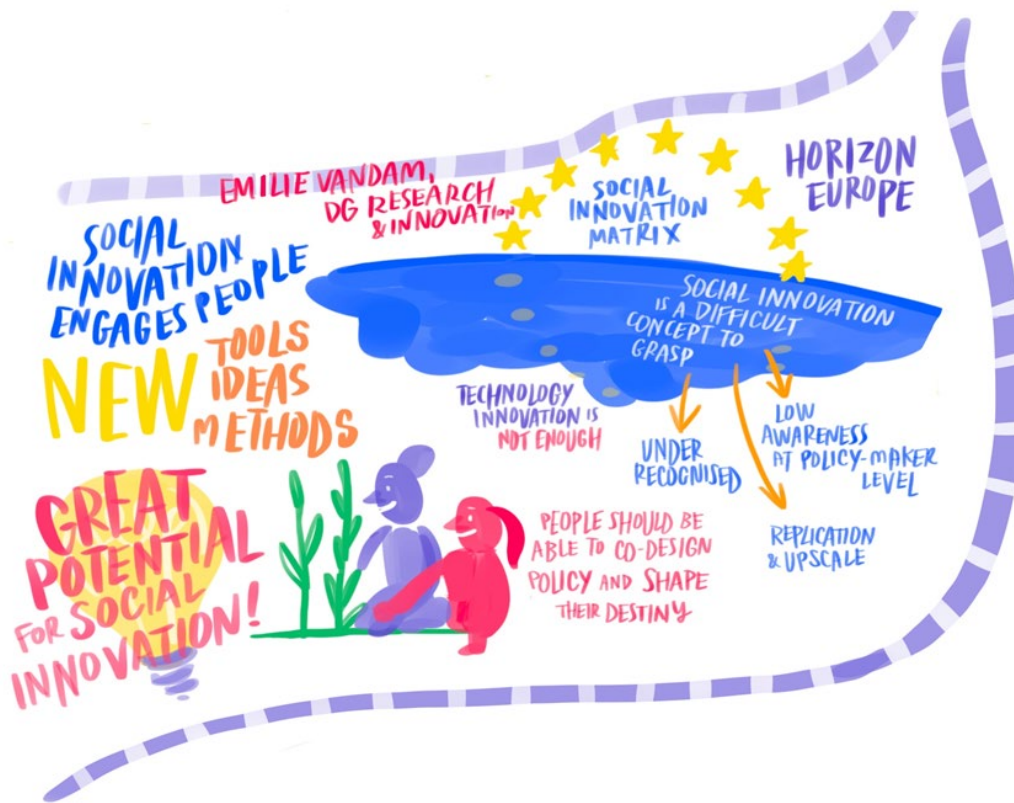 EMILIE VANDAM,
DG RESEARCH
& INNOVATION
SOCIAL
INNOVATION
MATRIX
HORIZON
EUROPE
SOCIAL
INNOVATION
ENGAGES PEOPLE
NEW
TOOLS
IDEAS
METHODS
SOCIAL INNOVATION
IS A DIFFICULT
CONCEPT TO
GRASP
TECHNOLOGY
INNOVATION IS
NOT ENOUGH
UNDER
RECOGNISED
LOW
AWARENESS
AT POLICY-MAKER
LEVEL
REPLICATION
& UPSCALE
GREAT
POTENTIAL
FOR SOCIAL
INNOVATION!
PEOPLE SHOULD BE
ABLE TO CO-DESIGN
POLICY AND SHAPE
THEIR DESTINY